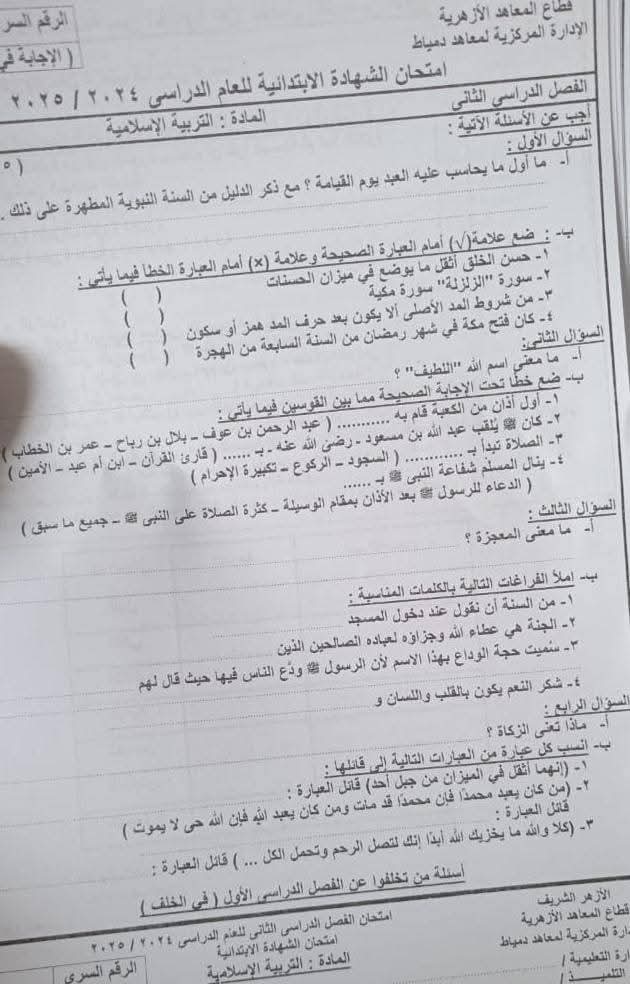 قطاع المعاهد الأزهرية
الإدارة المركزية لمعاهد دمياط
الرقم السر
( الإجابة في
امتحان الشهادة الابتدائية للعام الدراسى ٢٠٢٤ / ٢٠٢٥
الفصل الدراسي الثانى
المادة : التربية الإسلامية
أجب عن الأسئلة الآتية :
السؤال الأول :
( ٥
أ- ما أول ما يحاسب عليه العبد يوم القيامة ؟ مع ذكر الدليل من السنة النبوية المطهرة على ذلك .
ب- : ضع علامة(√) أمام العبارة الصحيحة وعلامة (×) أمام العبارة الخطأ فيما يأتي :
١- حسن الخلق أثقل ما يوضع في ميزان الحسنات ( )
٢- سورة "الزلزلة" سورة مكية ( )
٣- من شروط المد الأصلى ألا يكون بعد حرف المد همز أو سكون ( )
٤- كان فتح مكة في شهر رمضان من السنة السابعة من الهجرة ( )
السؤال الثانى:
أ- ما معنى اسم الله "اللطيف" ؟
ب- ضع خطًا تحت الإجابة الصحيحة مما بين القوسين فيما يأتي :
١- أول أذان من الكعبة قام به ........... ( عبد الرحمن بن عوف – بلال بن رباح – عمر بن الخطاب )
٢- كان ﷺ يُلقب عبد الله بن مسعود - رضى الله عنه - بـ ...... ( قارئ القرآن – ابن أم عبد – الأمين )
٣- الصلاة تبدأ بـ ............ ( السجود – الركوع – تكبيرة الإحرام )
٤- ينال المسلم شفاعة النبى ﷺ بـ ......
( الدعاء للرسول ﷺ بعد الأذان بمقام الوسيلة – كثرة الصلاة على النبى ﷺ – جميع ما سبق )
السؤال الثالث :
أ- ما معنى المعجزة ؟
ب- إملأ الفراغات التالية بالكلمات المناسبة :
١- من السنة أن نقول عند دخول المسجد
٢- الجنة هي عطاء الله وجزاؤه لعباده الصالحين الذين
٣- سُميت حجة الوداع بهذا الاسم لأن الرسول ﷺ ودَّع الناس فيها حيث قال لهم
٤- شكر النعم يكون بالقلب واللسان و
السؤال الرابع :
أ- ماذا تعنى الزكاة ؟
ب- انسب كل عبارة من العبارات التالية إلى قائلها :
١- (إنهما أثقل في الميزان من جبل أحد) قائل العبارة :
٢- (من كان يعبد محمدًا فإن محمدًا قد مات ومن كان يعبد الله فإن الله حى لا يموت )
قائل العبارة :
٣- (كلا والله ما يخزيك الله أبدًا إنك لتصل الرحم وتحمل الكل ... ) قائل العبارة :
أسئلة من تخلفوا عن الفصل الدراسى الأول ( في الخلف )
الأزهر الشريف
قطاع المعاهد الأزهرية
دارة المركزية لمعاهد دمياط
رة التعليمية /
التلميـــــذ /
امتحان الفصل الدراسى الثانى للعام الدراسى ٢٠٢٤ / ٢٠٢٥
امتحان الشهادة الابتدائية
المادة : التربية الإسلامية
الرقم السرى